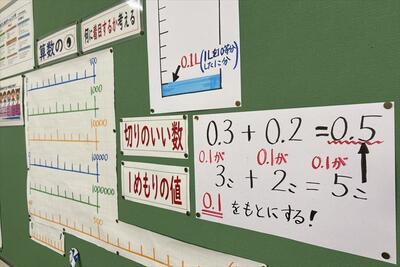 算数の
何に着目するか考える
100
1000
10000
100000
1000000
0.1L(1Lを10等分
した1こ分)
切りのいい数
1めもりの値
0.3+0.2=0.5
0.1が 0.1が 0.1が
3こ+2こ=5こ
0.1をもとにする!